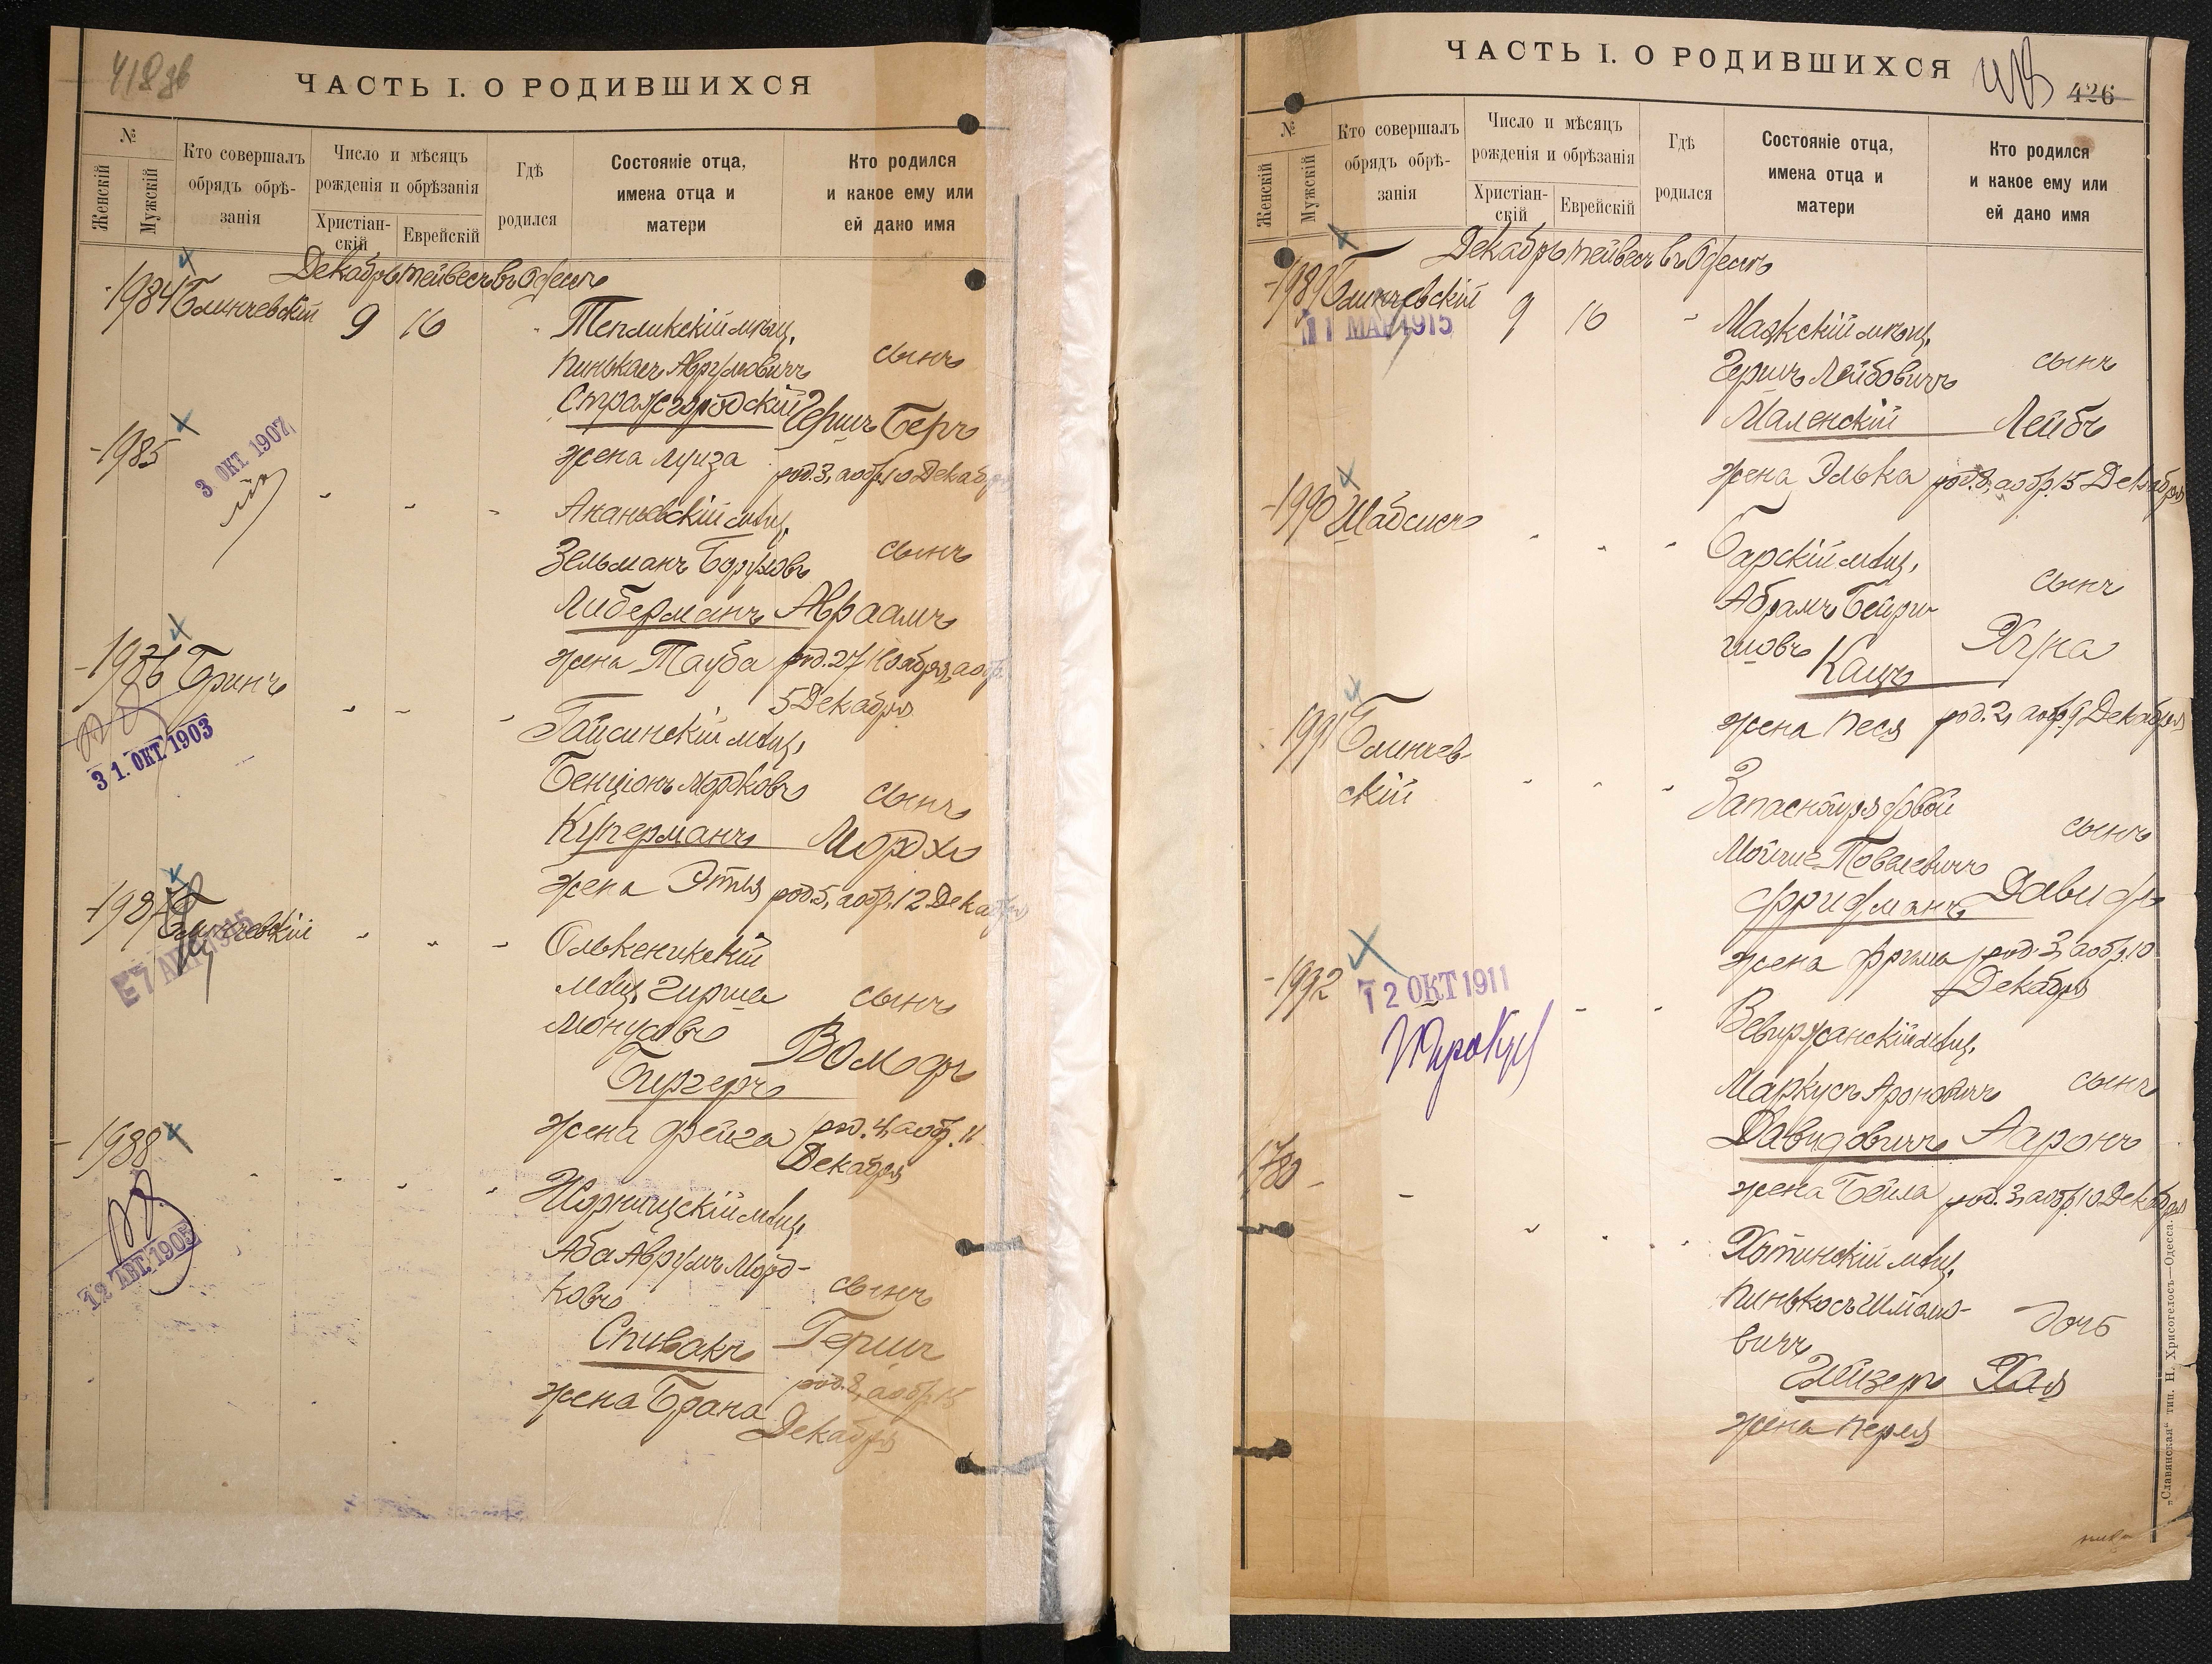 418 об
ЧАСТЬ I. О РОДИВШИХСЯ
№
Женскій
Мужскій
Кто совершалъ обрядъ обрѣ-занія
Число и мѣсяцъ рожденія и обрѣзанія
Христіан-скій
Еврейскій
Гдѣ родился
Состояніе отца, имена отца и матери
Кто родился и какое ему или ей дано имя
Декабрь тейвесъ въ Одессѣ
1984 Блинчевскій 9 16
Тепликскій мѣщ.
Пинькасъ Аврумовичъ сынъ
Стражгородскій Гершъ Беръ
жена Луиза род. 3, а обр. 10 Декабря
1985
3 ОКТ. 1907
Ананьевскій мѣщ.
Зельманъ Боруховъ сынъ
Либерманъ Авраамъ
жена Тауба род. 27 Ноября, а обр.
5 Декабря
1986 Бринъ
31. ОКТ. 1903
Гайсинскій мѣщ.
Бенціонъ Мордковъ сынъ
Куперманъ Мордхо
жена Этля род. 5, а обр. 12 Декабря
1987 Блинчевскій
Олькеникскій
мѣщ. Гирша сынъ
Монусовъ
Бургеръ
жена Фейга род. 4, а обр. 11
Декабря
1988
12 АВГ. 1905
мѣщ.
Аба Аврумъ Морд-
ковъ сынъ
Спивакъ Гершъ
жена Брана род. 8, а обр. 15
Декабря
ЧАСТЬ I. О РОДИВШИХСЯ
426
№
Женскій
Мужскій
Кто совершалъ обрядъ обрѣ-занія
Число и мѣсяцъ рожденія и обрѣзанія
Христіан-скій
Еврейскій
Гдѣ родился
Состояніе отца, имена отца и матери
Кто родился и какое ему или ей дано имя
Декабрь тейвесъ въ Одессѣ
1989 Блинчевскій 9 16
11 МАР 1915
Маякскій мѣщ.
Гершъ Лейбовичъ сынъ
Маленскій Лейбъ
жена Элька род. 8, а обр. 15 Декабря
1990 Шабсисъ
Барскій мѣщ.
Абрамъ Бейри- сынъ
шовъ Кацъ Хуна
жена Песя род. 2, а обр. 9 Декабря
1991 Блинчев-
скій
Запасной рядовой
Мойше Товіевичъ сынъ
Фридманъ Давидъ
жена Фрума род. 3, а обр. 10
Декабря
1992
12 ОКТ 1911
Вевиржанскій мѣщ.
Маркусъ Ароновичъ сынъ
Давидовичъ Ааронъ
жена Бейла род. 3, а обр. 10 Декабря
1780
Хотинскій мѣщ.
Пинькосъ Шмаю-
вичъ дочь
Глейзеръ Хая
жена Перля
„Славянская“ тип. Н. Хрисогелосъ—Одесса.